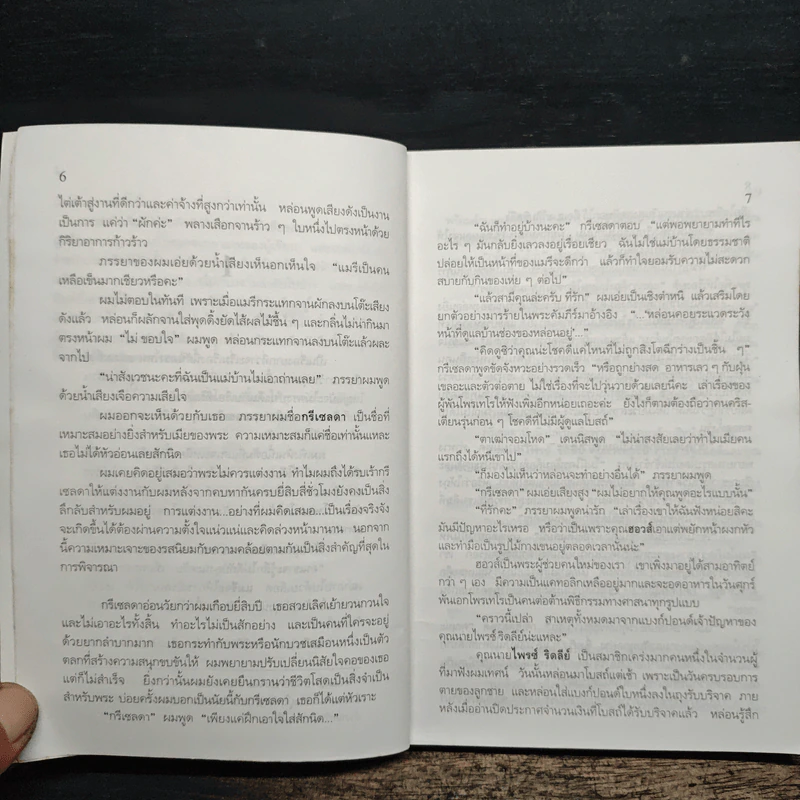 6
ไต่เต้าสู่งานที่ดีกว่าและค่าจ้างที่สูงกว่าเท่านั้น หล่อนพูดเสียงดังเป็นงาน
เป็นการ แค่ว่า “ผักค่ะ” พลางเสือกจานร้าว ๆ ใบหนึ่งไปตรงหน้าด้วย
กิริยาอาการก้าวร้าว
ภรรยาของผมเอ่ยด้วยน้ำเสียงเห็นอกเห็นใจ “แมรี่เป็นคน
เหลือเข็นมากเชียวหรือคะ”
ผมไม่ตอบในทันที เพราะเมื่อแมรี่กระแทกจานผักลงบนโต๊ะเสียง
ดังแล้ว หล่อนก็ผลักจานใส่พุดดิ้งยัดไส้ผลไม้ชื้น ๆ และกลิ่นไม่น่ากินมา
ตรงหน้าผม “ไม่ ขอบใจ” ผมพูด หล่อนกระแทกจานลงบนโต๊ะแล้วผละ
จากไป
“น่าสังเวชนะคะที่ฉันเป็นแม่บ้านไม่เอาถ่านเลย” ภรรยาผมพูด
ด้วยน้ำเสียงเจือความเสียใจ
ผมออกจะเห็นด้วยกับเธอ ภรรยาผมชื่อกรีเซลดา เป็นชื่อที่
เหมาะสมอย่างยิ่งสำหรับเมียของพระ ความเหมาะสมก็แค่ชื่อเท่านั้นแหละ
เธอไม่ได้หัวอ่อนเลยสักนิด
ผมเคยคิดอยู่เสมอว่าพระไม่ควรแต่งงาน ทำไมผมถึงได้รบเร้ากรี
เซลดาให้แต่งงานกับผมหลังจากคบหากันครบยี่สิบสี่ชั่วโมงยังคงเป็นสิ่ง
ลึกลับสำหรับผมอยู่ การแต่งงาน...อย่างที่ผมคิดเสมอ...เป็นเรื่องจริงจัง
จะเกิดขึ้นได้ต้องผ่านความตั้งใจแน่วแน่และคิดล่วงหน้ามานาน นอกจาก
นี้ความเหมาะเจาะของรสนิยมกับความคล้อยตามกันเป็นสิ่งสำคัญที่สุดใน
การพิจารณา
กรีเซลดาอ่อนวัยกว่าผมเกือบยี่สิบปี เธอสวยเลิศเย้ายวนกวนใจ
และไม่เอาอะไรทั้งสิ้น ทำอะไรไม่เป็นสักอย่าง และเป็นคนที่ใครจะอยู่
ด้วยยากลำบากมาก เธอกระทำกับพระหรือนักบวชเสมือนหนึ่งเป็นตัว
ตลกที่สร้างความสนุกขบขันให้ ผมพยายามปรับเปลี่ยนนิสัยใจคอของเธอ
แต่ก็ไม่สำเร็จ ยิ่งกว่านั้นผมยังเคยยืนกรานว่าชีวิตโสดเป็นสิ่งจำเป็น
สำหรับพระ บ่อยครั้งผมบอกเป็นนัยนี้กับกรีเซลดา เธอก็ได้แต่หัวเราะ
“กรีเซลดา” ผมพูด “เพียงแค่ฝึกเอาใจใส่สักนิด...”
7
“ฉันก็ทำอยู่บ้างนะคะ” กรีเซลดาตอบ “แต่พอพยายามทำทีไร
อะไร ๆ มันกลับยิ่งเลวลงอยู่เรื่อยเชียว ฉันไม่ใช่แม่บ้านโดยธรรมชาติ
ปล่อยให้เป็นหน้าที่ของแมรี่จะดีกว่า แล้วก็ทำใจยอมรับความไม่สะดวก
สบายกับกินของเห่ย ๆ ต่อไป”
“แล้วสามีคุณล่ะครับ ที่รัก” ผมเอ่ยเป็นเชิงตำหนิ แล้วเสริมโดย
ยกตัวอย่างมารร้ายในพระคัมภีร์มาอ้างอิง “...‘หล่อนคอยระแวดระวัง
หน้าที่ดูแลบ้านช่องของหล่อนอยู่’...”
“คิดดูซิว่าคุณน่ะโชคดีแค่ไหนที่ไม่ถูกสิงโตฉีกร่างเป็นชิ้น ๆ”
กรีเซลดาพูดขัดจังหวะอย่างรวดเร็ว “หรือถูกย่างสด อาหารเลว ๆ กับฝุ่น
เขลอะและตัวต่อตาย ไม่ใช่เรื่องที่จะไปวุ่นวายด้วยเลยนี่คะ เล่าเรื่องของ
ผู้พันโพรเทโรให้ฟังเพิ่มอีกหน่อยเถอะค่ะ ยังไงก็ตามต้องถือว่าคนคริส-
เตียนรุ่นก่อน ๆ โชคดีที่ไม่มีผู้ดูแลโบสถ์”
“ตาเฒ่าจอมโหด” เดนนิสพูด “ไม่น่าสงสัยเลยว่าทำไมเมียคน
แรกถึงได้หนีเขาไป”
“ก็มองไม่เห็นว่าหล่อนจะทำอย่างอื่นได้” ภรรยาผมพูด
“กรีเซลดา” ผมเอ่ยเสียงสูง “ผมไม่อยากให้คุณพูดอะไรแบบนั้น”
“ที่รักคะ” ภรรยาผมพูดน่ารัก “เล่าเรื่องเขาให้ฉันฟังหน่อยสิคะ
มันมีปัญหาอะไรเหรอ หรือว่าเป็นเพราะคุณฮอวส์เอาแต่พยักหน้าผงกหัว
และทำมือเป็นรูปไม้กางเขนอยู่ตลอดเวลานั่นน่ะ”
ฮอวส์เป็นพระผู้ช่วยคนใหม่ของเรา เขาเพิ่งมาอยู่ได้สามอาทิตย์
กว่า ๆ เอง มีความเป็นแคทอลิกเหลืออยู่มากและจะอดอาหารในวันศุกร์
พันเอกโพรเทโรเป็นคนต่อต้านพิธีกรรมทางศาสนาทุกรูปแบบ
“คราวนี้เปล่า สาเหตุทั้งหมดมาจากแบงก์ปอนด์เจ้าปัญหาของ
คุณนายไพรซ์ ริดลีย์น่ะแหละ”
คุณนายไพรซ์ ริดลีย์ เป็นสมาชิกเคร่งมากคนหนึ่งในจำนวนผู้
ที่มาฟังผมเทศน์ วันนั้นหล่อนมาโบสถ์แต่เช้า เพราะเป็นวันครบรอบการ
ตายของลูกชาย และหล่อนใส่แบงก์ปอนด์ใบหนึ่งลงในถุงรับบริจาค ภาย
หลังเมื่ออ่านปิดประกาศจำนวนเงินที่โบสถ์ได้รับบริจาคแล้ว หล่อนรู้สึก